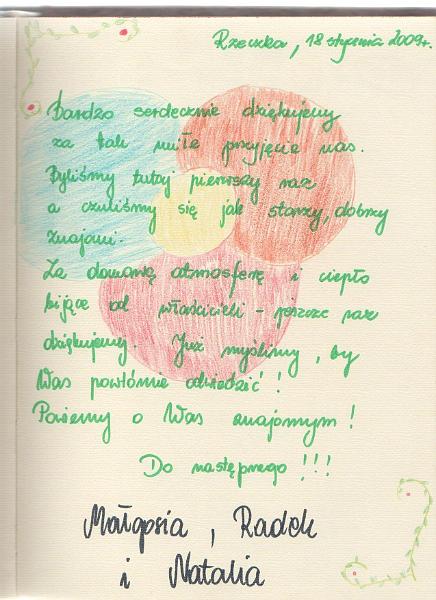 Rzeczka, 18 stycznia 2009r.
Bardzo serdecznie dziękujemy
za tak miłe przyjęcie nas.
Byliśmy tutaj pierwszy raz
a czuliśmy się jak starzy, dobrzy
znajomi.
Za domową atmosferę i ciepło
bijące od właścicieli - jeszcze raz
dziękujemy. Już myślimy, by
Was powtórnie odwiedzić!
Powiemy o Was znajomym!
Do następnego!!!
Małgosia, Radek
i Natalia